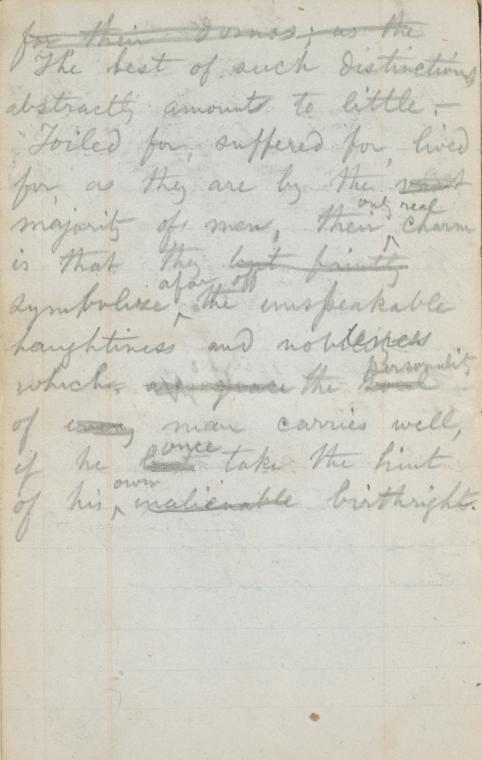 for their         ; as the
The best of such distinctions
abstractly amounts to little.—
Toiled for, suffered for, lived
for, as they are by the vast
majority of men, their only real charm
is that they but faintly
symbolise afar off the unspeakable
haughtiness and noblenesses
which the personality
of every man carries well,
if he but once take the hint
of his own inalienable birthright.